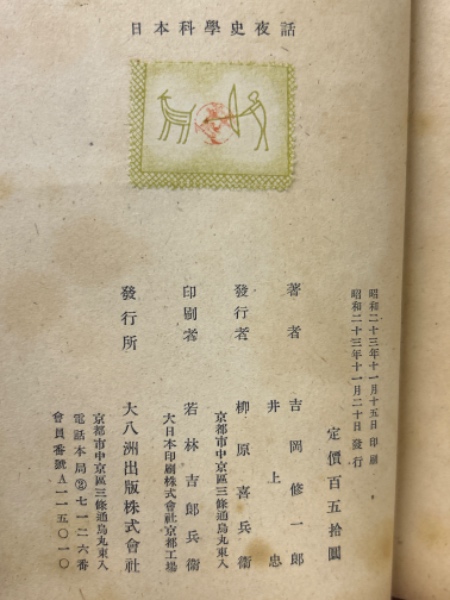 日本科學史夜話
昭和二十三年十一月十五日印刷
昭和二十三年十一月二十日發行
定價百五拾圓
著者 吉岡修一郎
井上忠
發行者 柳原喜兵衞
京都市中京區三條通烏丸東入
印刷者 若林吉郎兵衞
大日本印刷株式會社京都工場
發行所 大八洲出版株式會社
京都市中京區三條通烏丸東入
電話本局②七一二六番
會員番號A一一五〇一〇